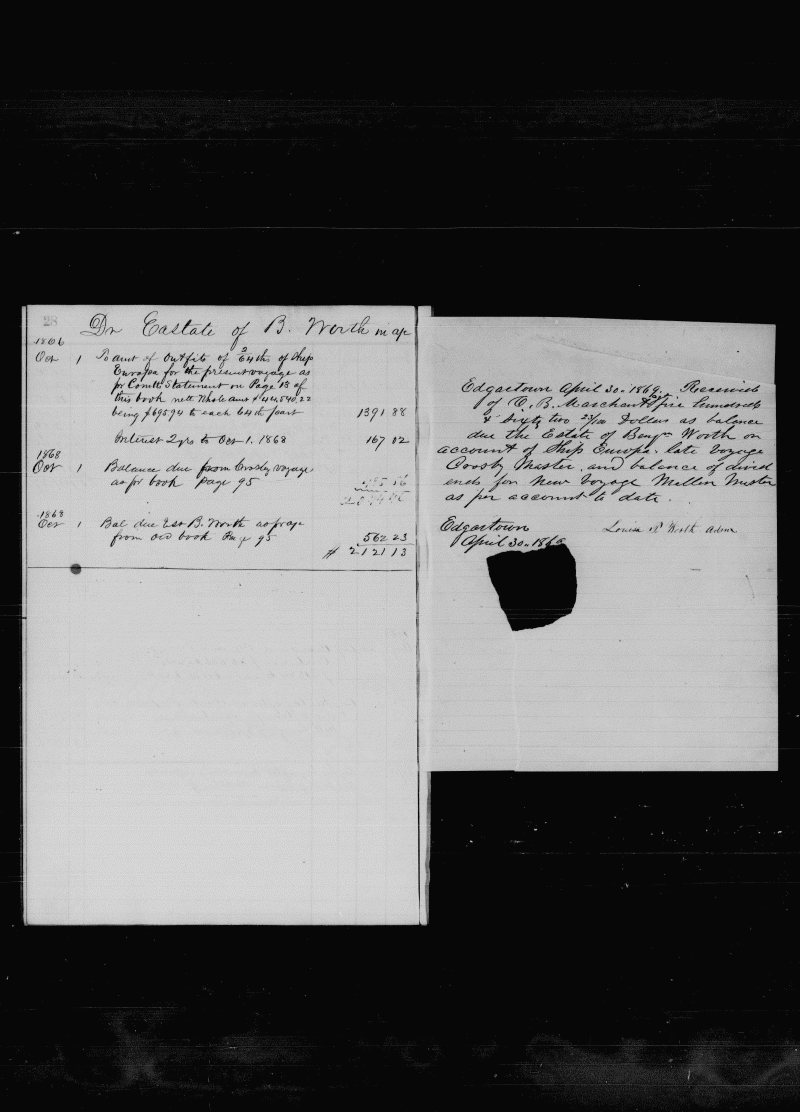 28
Dr Eastate of B. Worth in a/c
1866
Oct 1 To amt of Outfits of 2/64ths of Ship
Europa for the present voyage as
pr Comtts Statement on Page 18 of
this book nett Whole amt $44,540.22
being $695.94 to each 64th part 1391 88
Interest 2 yrs to Oct 1. 1868 167 02
1868
Oct 1 Balance due from Crosby voyage
as pr book Page 95
1868
Oct 1 Bal due Est B. Worth as pr page
from old book Page 95 562 23
$ 2121 13
Edgartown April 30. 1869. Received
of C. B. Marchant five hundred
& Sixty two 23/100 Dollars as balance
due the Estate of Benjn Worth on
account of Ship Europa. late Voyage
Crosby Master. and balance of divid
ends for new Voyage Mellen Master
as per account to date.
Edgartown Louisa Worth Admx
April 30. 1869